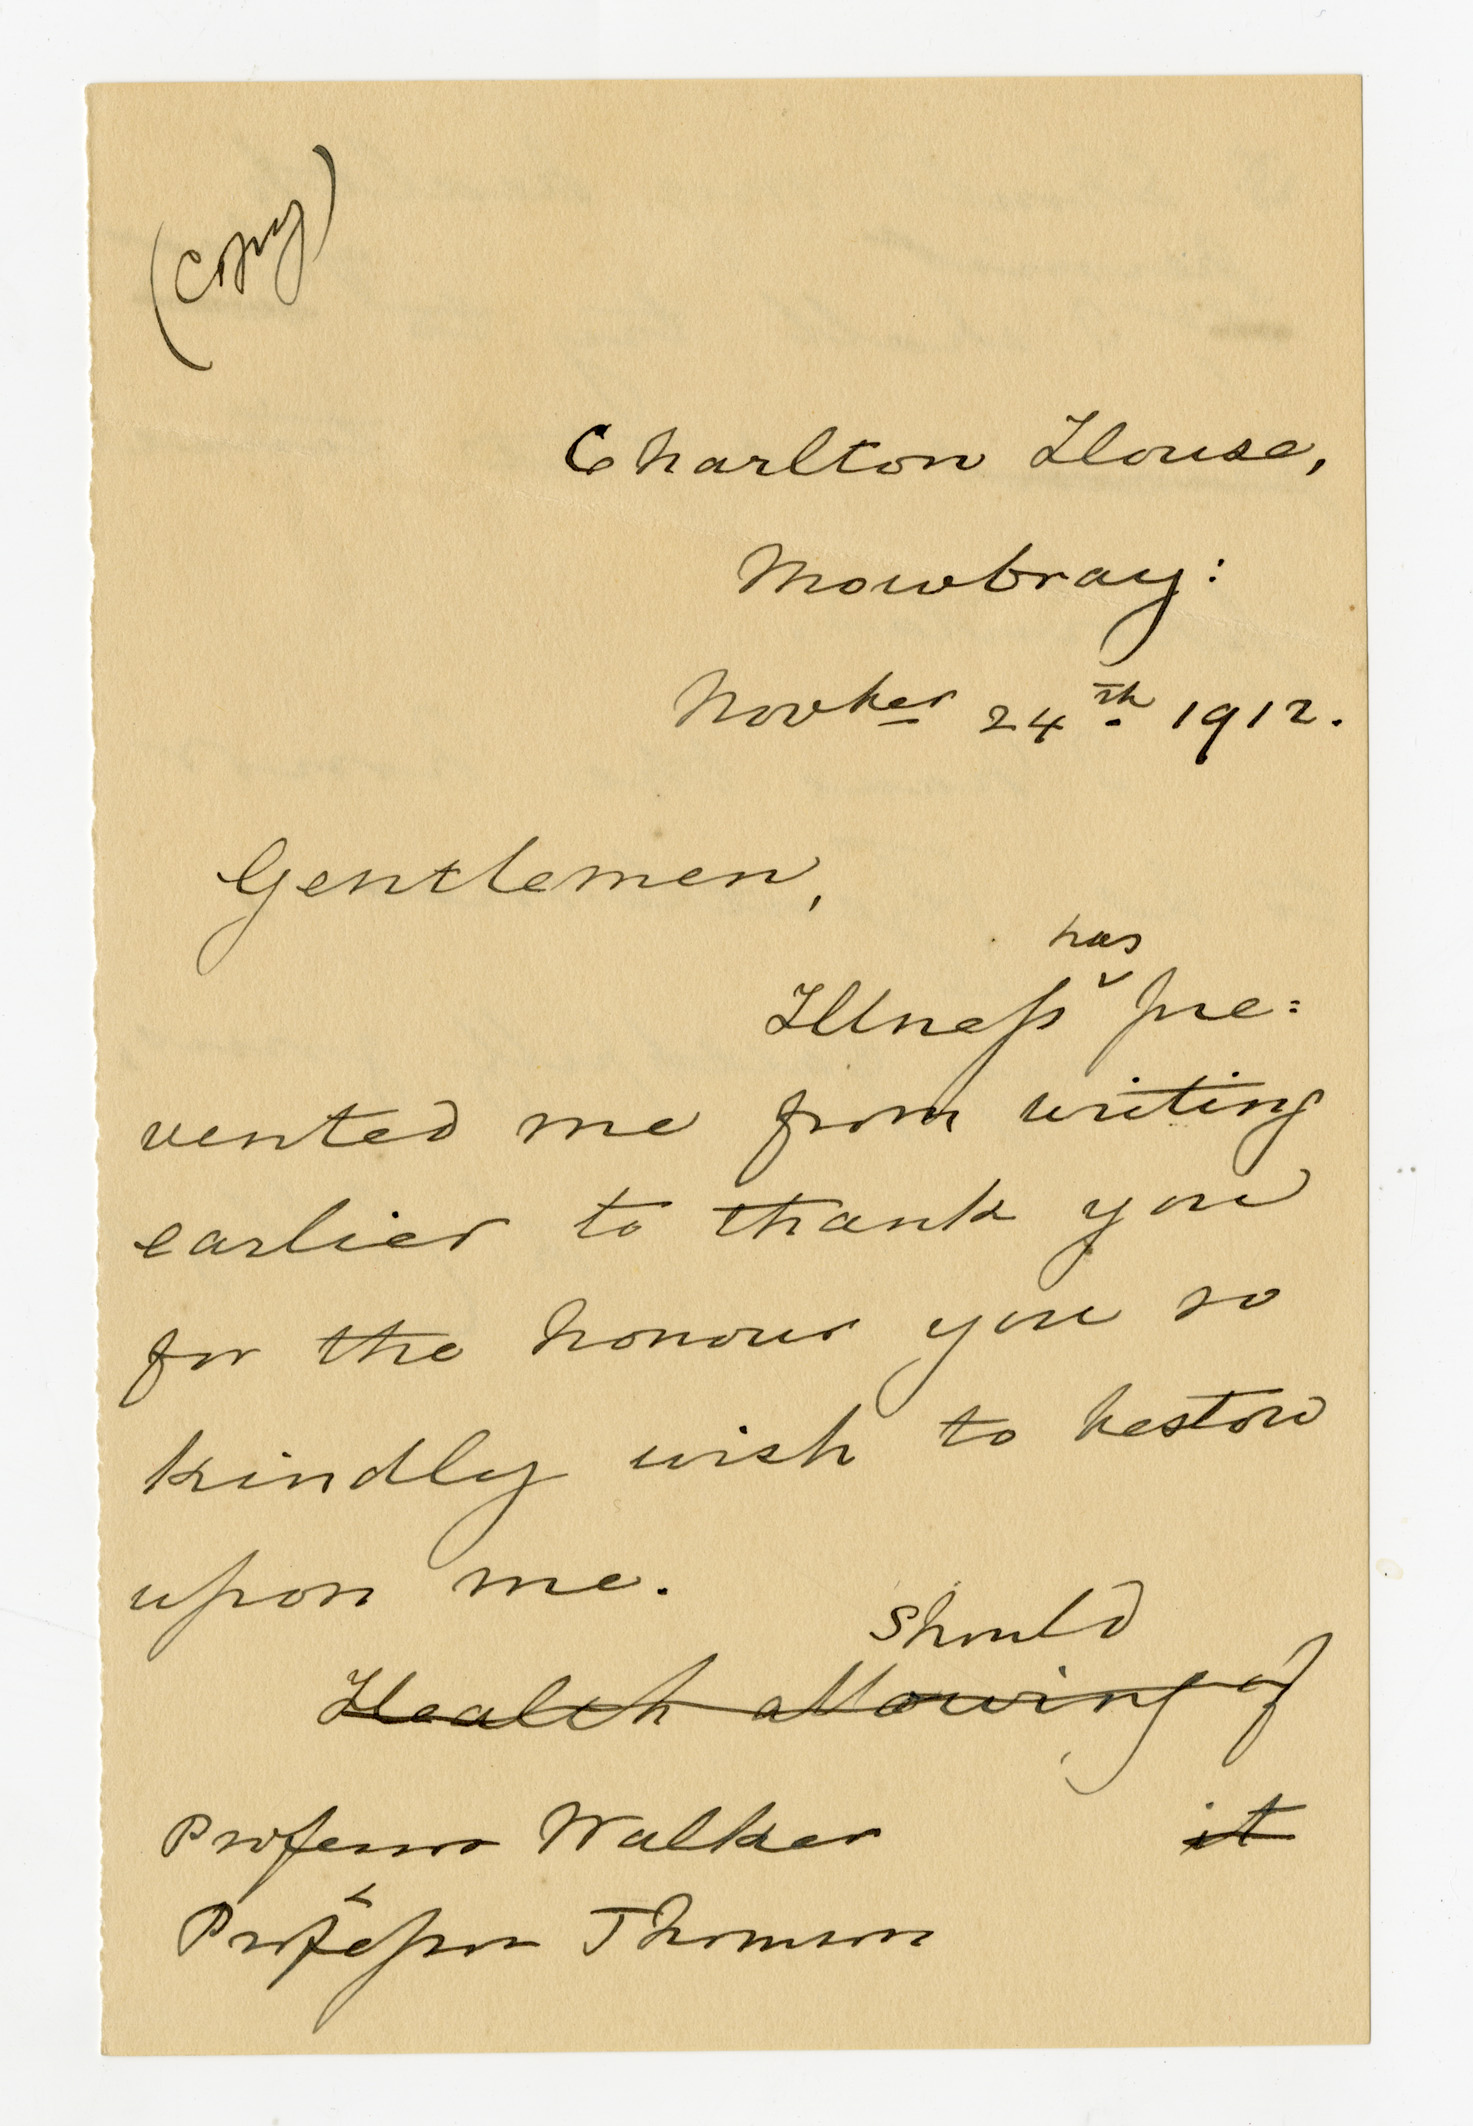 (Copy)
Charlton House,
Mowbray:
Novber 24th. 1912.
Gentlemen,
has
Illness pre=
vented me from writing
earlier to thank you
for the honour you so
kindly wish to bestow
upon me.
should
Health allowing of
it
Professor Walker
Professor Thomson